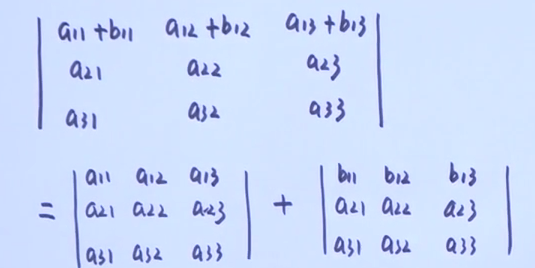 | a11+b11 a12+b12 a13+b13 |
| a21 a22 a23 |
| a31 a32 a33 |
= | a11 a12 a13 | + | b11 b12 b13 |
| a21 a22 a23 | | a21 a22 a23 |
| a31 a32 a33 | | a31 a32 a33 |